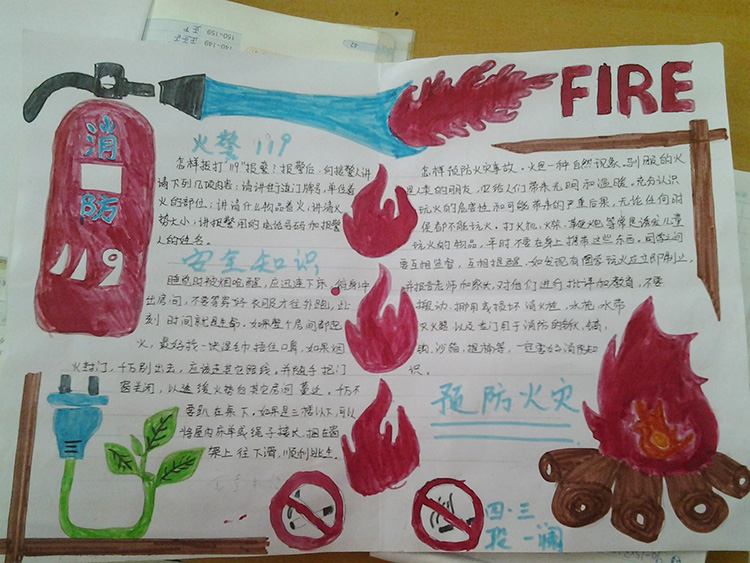 150-159
140-149
42
FIRE
消
防
119
火警 119
怎样拨打"119"报警？报警后，向报警人讲
请下列几项内容：请讲出门牌号，单位着
火的部位；讲请什么物品着火，讲清火
势大小；讲报警用的电话号码和报警
人的姓名。
安全知识
睡觉时被烟呛醒，应迅速下床，俯身冲
出房间，不要等穿好衣服才往外跑，此
刻时间就是生命。如果整个房间都起
火，最好找一块湿毛巾捂住口鼻，如果烟
火封门，千万别出去，应该走其它路线，并随手把门
窗关闭，以延缓火势向其它房间蔓延，千万不
要趴在床下。如果是三楼以下，可以
将屋内床单或绳子接长，捆在窗
架上往下滑，顺利逃生。
怎样预防火灾事故。火是一种自然现象，驯服的火
是人类的朋友，它给人们带来光明和温暖。充分认识
玩火的危害性和可能带来的严重后果，无论任何时
候都不能玩火。打火机，火柴，等是诱发儿童
玩火的物品，平时不要在身上携带这些东西。同学之间
要互相监督，互相提醒，如发现有同学玩火应立即制止，
并报告老师和家长，对他们进行批评和教育，不要
搬动、挪用或损坏消火栓，水枪，水带
灭火器以及专门用于消防的锹、镐，
钩，沙箱，提桶等，一定要
识。
预防火灾
四·三
一澜